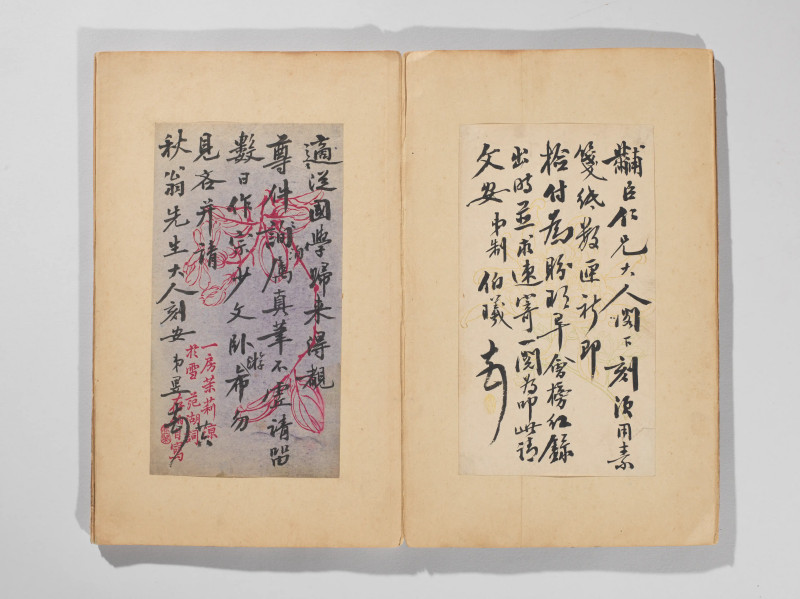 黼臣仁兄大人閣下刻須用素
箋紙數匣祈即
拾付為盼頃早會榜紅錄
出時並求速寄一閱為叩此請
文安 弟制 伯曦 頓
適從國學歸來得覩
尊件謂為真筆不虛請留
數日作宗少文臥遊希勿
見吝并請
秋翁先生大人刻安 弟昱頓
一房茉莉涼
於雪 范湖詞